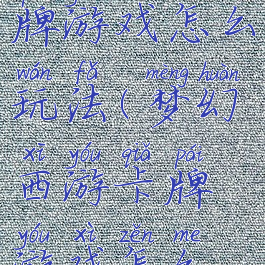 牌游戏怎么
wán fǎ mèng huàn
玩法(梦幻
xī yóu qiǎ pái
西游卡牌
yóu xì zěn me
游戏怎么